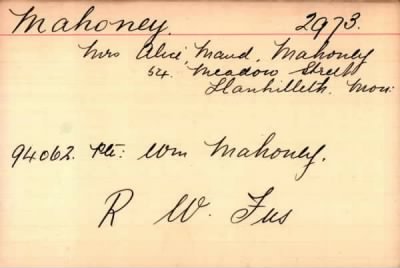 Mahoney. 2973.
Mrs Alice Maud, Mahoney
54. Meadow Street
Llanhilleth. Mon:
94062. Pte: Wm Mahoney.
R W. Fus